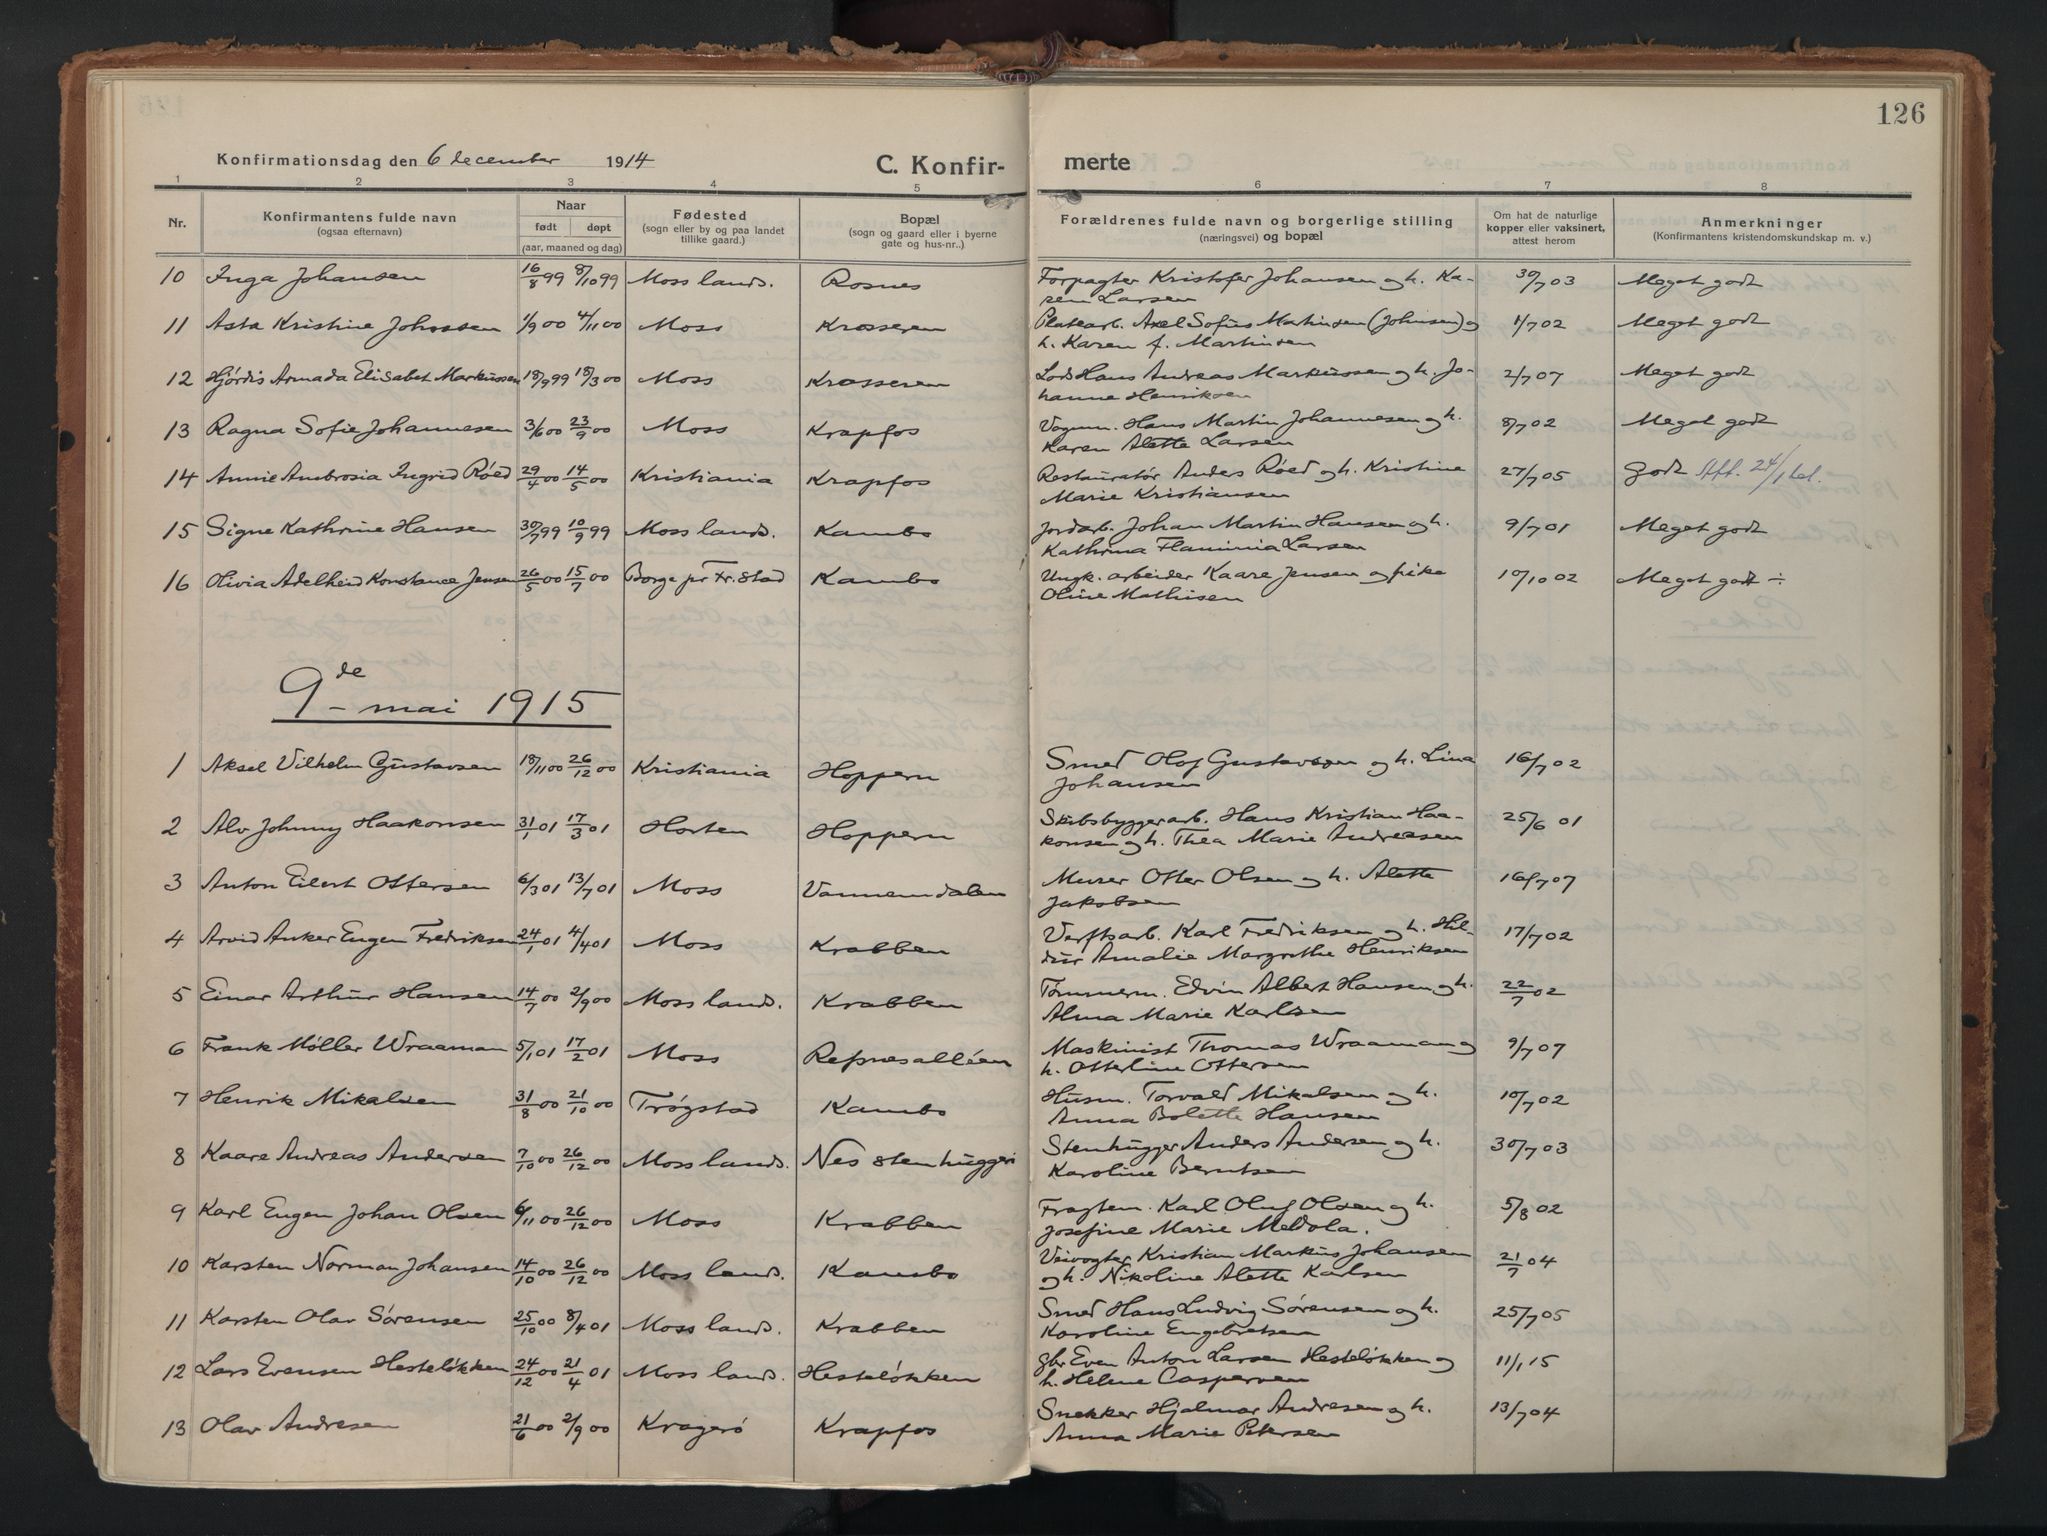 126
Konfirmationsdag den 6 december 1914 C. Konfir- merte
1 2 3 4 5 6 7 8
Nr. Konfirmantens fulde navn (ogsaa efternavn) Naar født døpt (aar, maaned og dag) Fødested (sogn eller by og paa landet tillike gaard.) Bopæl (sogn og gaard eller i byerne gate og hus-nr..) Forældrenes fulde navn og borgerlige stilling (næringsvei) og bopæl Om hat de naturlige kopper eller vaksinert, attest herom Anmerkninger (Konfirmantens kristendomskundskap m. v.)
10 Inga Johansen 16/8 99 8/10 99 Moss lands. Rosnes Forpagter Kristofer Johansen og h. Ka- 30/7 03 Meget godt
ren Larsen
11 Asta Kristine Johnsen 1/9 00 4/11 00 Moss Krosseren Platearb. Axel Sofus Martinsen (Johnsen) og 1/7 02 Meget godt
h. Karen f. Martinsen
12 Hjørdis Armada Elisabet Markussen 18/9 99 18/3 00 Moss Krosseren Lods Hans Andreas Markussen og h. Jo- 2/7 07 Meget godt
hanne Henriksen
13 Ragna Sofie Johannesen 3/6 00 23/9 00 Moss Krapfos Vognm. Hans Martin Johannesen og h. 8/7 02 Meget godt
Karen Alette Larsen
14 Annie Ambrosia Ingrid Røed 29/4 00 14/5 00 Kristiania Krapfos Restauratør Anders Røed og h. Kristine 27/7 05 Godt Att. 24/1
Marie Kristiansen
15 Signe Kathrine Hansen 30/7 99 10/9 99 Moss lands. Kambo Jordarb. Johan Martin Hansen og h. 9/7 01 Meget godt
Kathrina Flaminia Larsen
16 Olivia Adelheid Konstance Jensen 26/5 00 15/7 00 Borge pr Fr.stad Kambo Ungk. arbeider Kaare Jensen og pike 10/10 02 Meget godt ÷
Oline Mathisen
9de mai 1915
1 Aksel Vilhelm Gustavsen 18/11 00 26/12 00 Kristiania Hoppern Smed Olof Gustavsson og h. Lina 16/7 02
Johansen
2 Alv Johnny Haakonsen 31/1 01 17/3 01 Horten Hoppern Skibsbyggerarb. Hans Kristian Haa- 25/6 01
konsen og h. Thea Marie Andreasen
3 Anton Eilert Ottersen 6/3 01 13/7 01 Moss Vannemdalen Murer Otter Olsen og h. Alette 16/7 07
Jakobsen
4 Arvid Anker Eugen Fredriksen 24/1 01 4/4 01 Moss Krabben Verftsarb. Karl Fredriksen og h. Hil- 17/7 02
dur Amalie Margrethe Henriksen
5 Einar Arthur Hansen 14/7 00 2/9 00 Moss lands. Krabben Tømmerm. Edvin Albert Hansen og h. 22/7 02
Alma Marie Karlsen
6 Frank Møller Wraaman 5/1 01 17/2 01 Moss Refsnesalléen Maskinist Thomas Wraaman og 9/7 07
h. Otterline Ottersen
7 Henrik Mikalsen 31/8 00 21/10 00 Trøgstad Kambo Husm. Torvald Mikalsen og h. 10/7 02
Anna Bolette Hansen
8 Kaare Andreas Andersen 7/10 00 26/12 00 Moss lands. Nes stenhuggeri Stenhugger Anders Andersen og h. 30/7 03
Karoline Berntsen
9 Karl Eugen Johan Olsen 6/11 00 26/12 00 Moss Krabben Fragtem. Karl Oluf Olsen og h. 5/8 02
Josefine Marie Medola.
10 Karsten Norman Johansen 14/10 00 26/12 00 Moss lands. Kambo Veivogter Kristian Markus Johansen 21/7 04
og h. Nikoline Alette Karlsen
11 Karsten Olav Sørensen 25/10 00 8/4 01 Moss lands. Krabben Smed Hans Ludvig Sørensen og h. 25/7 05
Karoline Engebretsen
12 Lars Evensen Hesteløkken 24/12 00 21/4 01 Moss lands. Hesteløkken gbr Even Anton Larsen Hesteløkken og 11/1 15
h. Helene Caspersen
13 Olav Andresen 21/6 00 2/9 00 Kragerø Krapfos Snekker Hjalmar Andresen og h. 13/7 04
Anna Marie Petersen